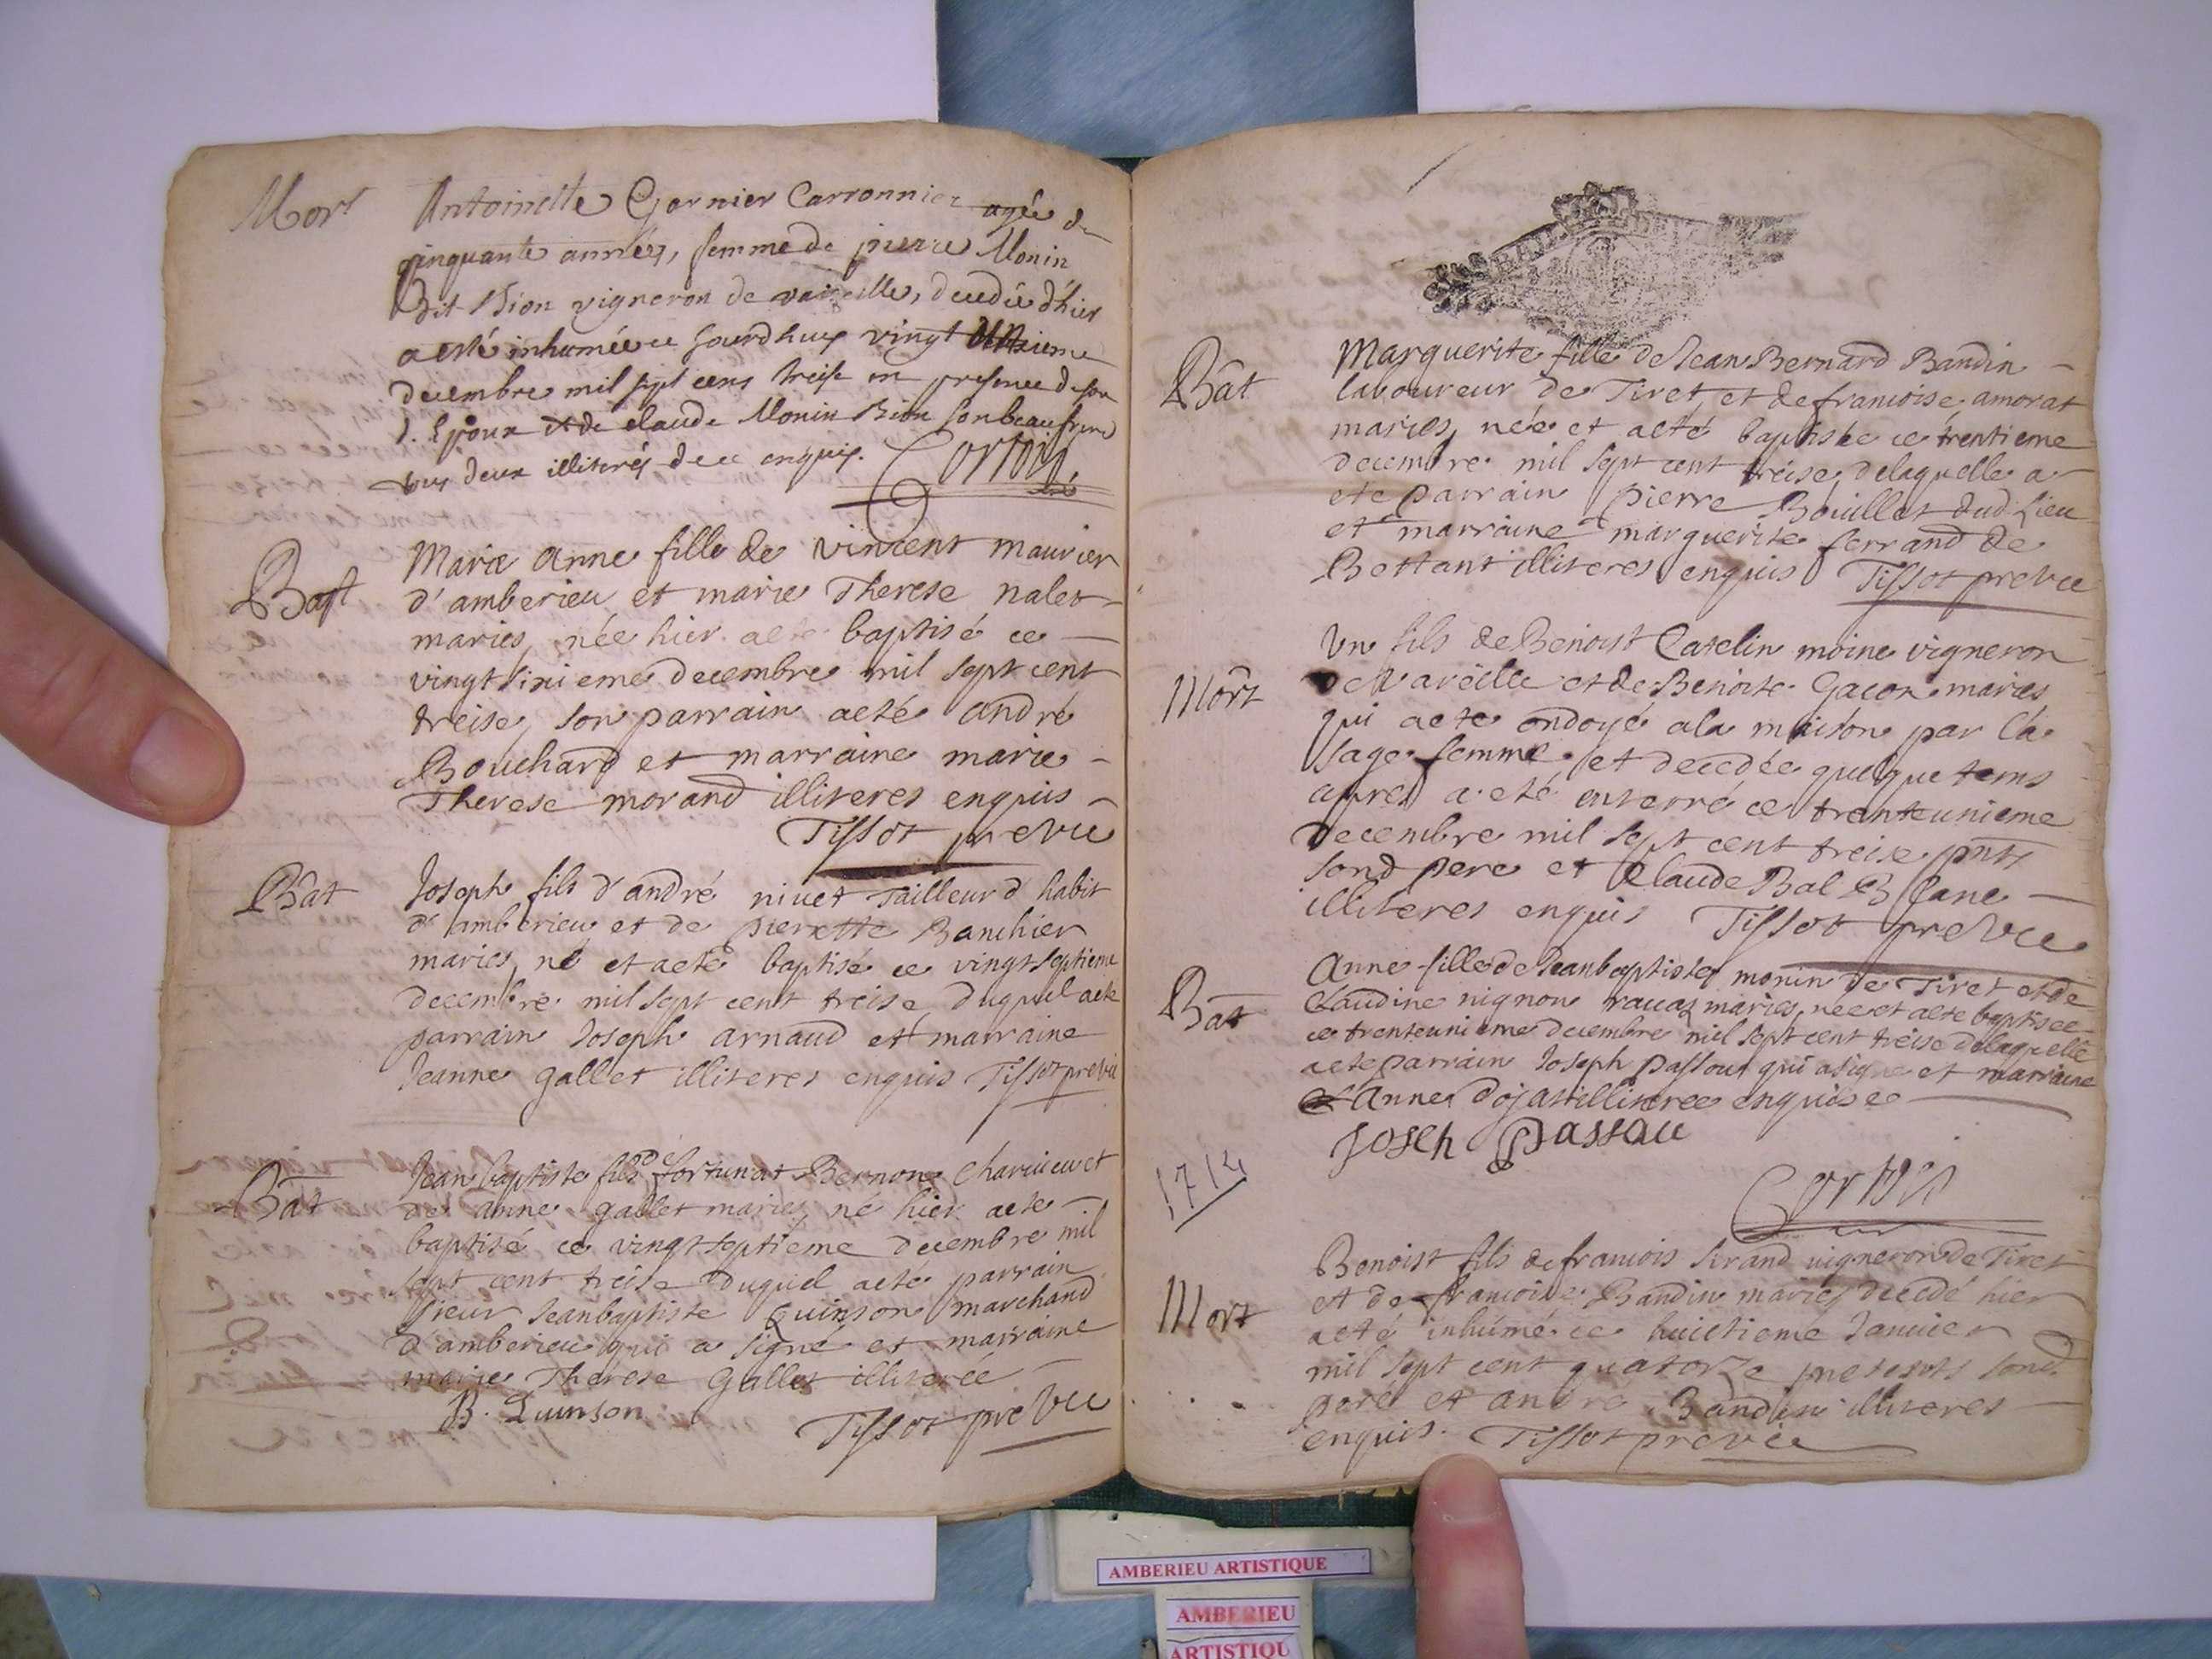 Mort
Antoinette Garnier Carronnier agée de
cinquante années, femme de pierre Monin
dit Bion vigneron de vareille, decedée d'hier
a esté inhumée ce jourdhuy vingt
decembre mil sept cens treise en presence de son
d. Epoux et de claude Monin Bion son beau frere
tous deux illiterés de ce enquis. Cortois
Bapt
Marie Anne fille de vincent maurier
d'amberieu et marie Therese nalet
mariés, née hier aeté baptisé ce
vingt sixieme decembre mil sept cent
treise, son parrain aeté andré
Bouchard et marraine marie
Therese morand illiteres enquis
Tissot prevu
Bât
Joseph fils d'andré nivet Tailleur d'habit
d'amberieu et de pierrette Banchier
mariés, né et aeté baptisé ce vingt septieme
decembre mil sept cent treise duquel aeté
parrain Joseph arnaud et marraine
Jeanne gallet illiteres enquis Tissot prevu
Bât
Jean baptiste fils de fortunat Bernon et
de anne gallet mariés, né hier aeté
baptisé ce vingt septieme decembre mil
sept cent treise duquel aeté parrain
sieur Jeanbaptiste Quinson marchand
d'amberieu qui a signé et marraine
marie Therese Gallet illiterée
B. Quinson
Tissot prevu
Bât
Marguerite fille de Jean Bernard Bandin
laboureur de Tiret, et de francoise amorat
mariés, née et aeté baptisée ce trentieme
decembre mil sept cent treise, delaquelle a
eté parrain pierre Bouillet dud. Lieu
et marraine marguerite ferrand de
Bettant illiteres enquis Tissot prevu
Mort
Un fils de Benoist Catelin moine vigneron
de Vareille et de Benoite Gacon mariés
qui aeté ondoyé ala maison par la
sage femme et decedée quelque tems
apres a eté enterré ce trenteunieme
decembre mil sept cent treise pnts
sond pere et Claude Bal Blanc
illiteres enquis Tissot prevu
Bât
Anne fille de Jeanbaptiste monin de Tiret et de
Claudine nignon mariés, née et aeté baptisée
ce trenteunieme decembre mil sept cent treise delaquelle
aeté parrain Joseph passout qui a signé et marraine
Anne dojat illiterée enquise
Joseh Passau
Cortois
1714
Mort
Benoist fils de francois ferrand vigneron de Tiret
et de francoise Bandin mariés decedé hier
aeté inhumé ce huictieme Janvier
mil sept cent quatorze presents sond
pere et andre Bandin illiteres
enquis. Tissot prevu
AMBERIEU ARTISTIQUE
AMBERIEU
ARTISTIQU